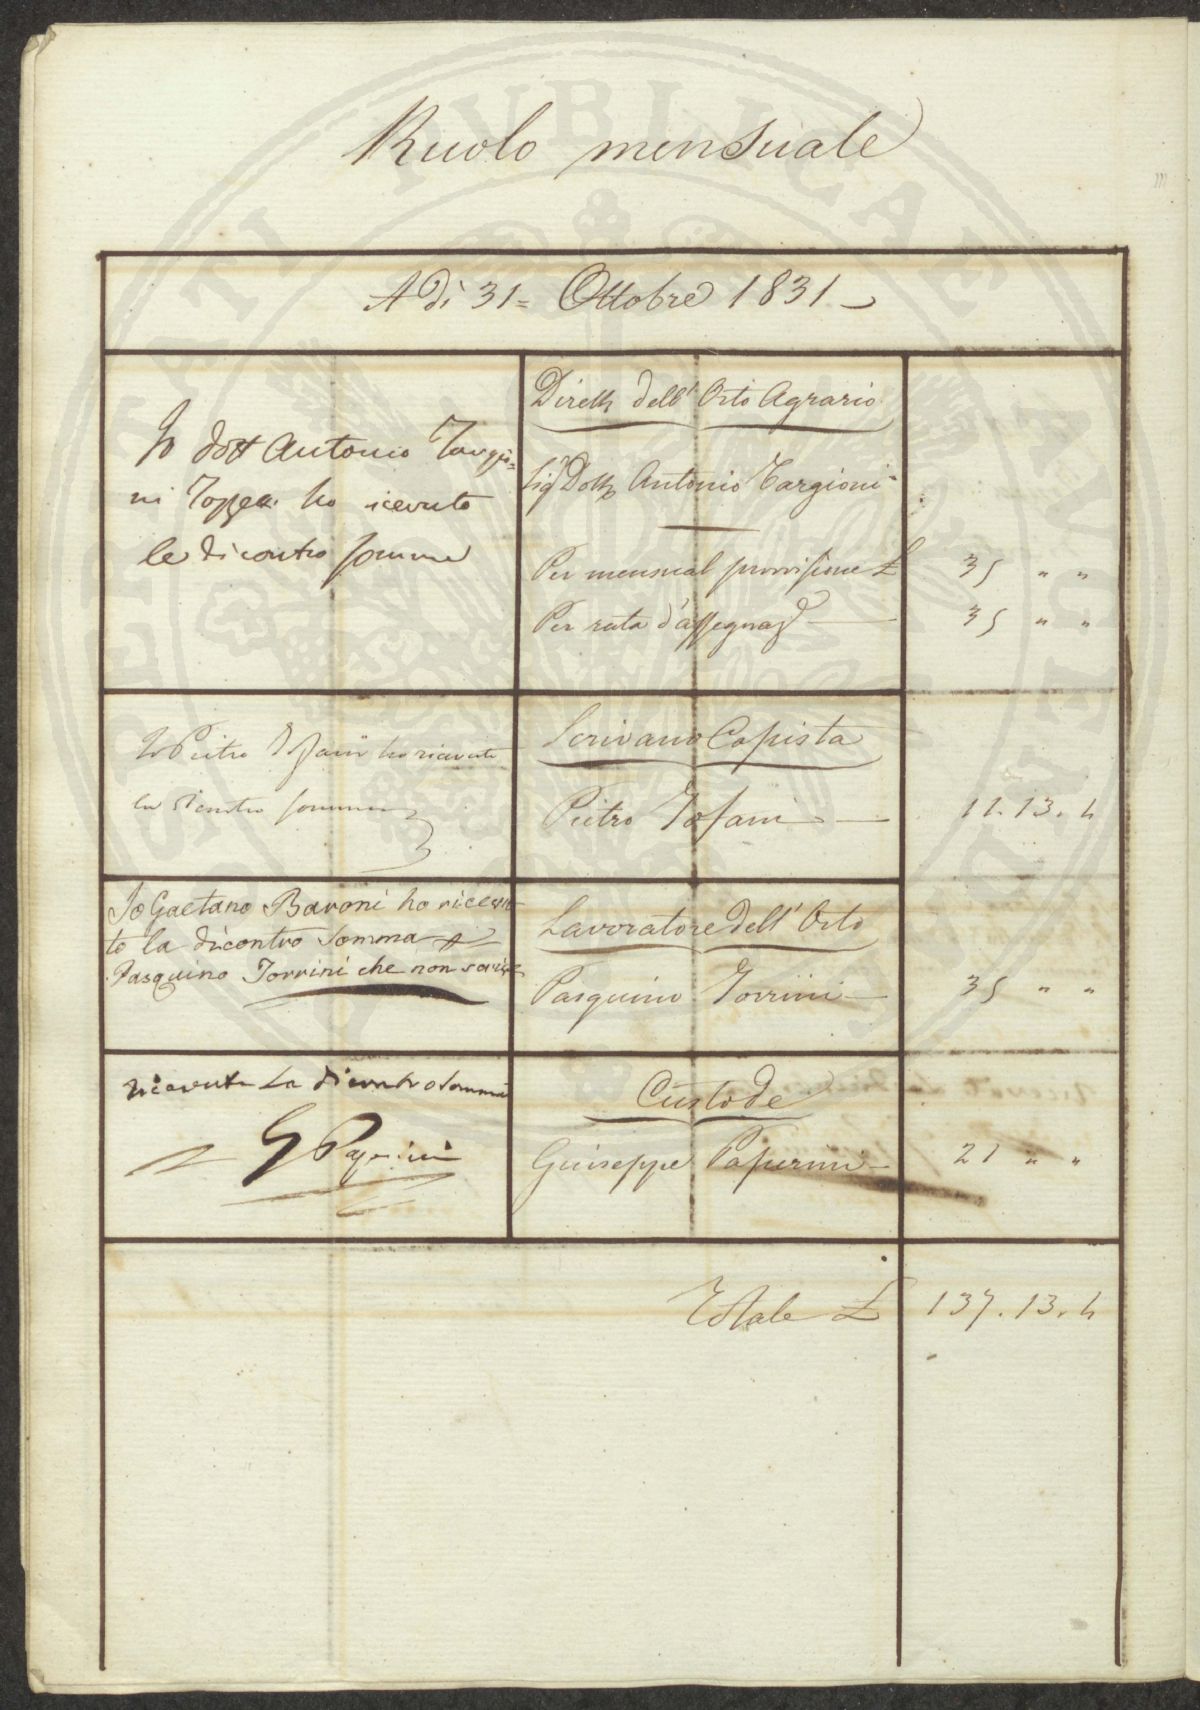 Ruolo mensuale
A dì 31= Ottobre 1831
Io dott Antonio Targio=
ni Tozzetti ho ricevuto
le dicontro somme
Dirett. dell' Orto Agrario
Sig. Dott. Antonio Targioni
Per mensual provvisione £ 35 " "
Per rata d'assegnaz. 35 " "
Io Pietro Tofani ho ricevuto
la dicontro somma
Scrivano Copista
Pietro Tofani 11. 13. 4
Io Gaetano Baroni ho ricevu
to la dicontro somma p
Pasquino Torrini che non scrive
Lavoratore dell' Orto
Pasquino Torrini 35 " "
ricevuto la dicontro somma
G Paperini
Custode
Giuseppe Paperini 21 " "
Totale £ 137. 13. 4
PIETATI PVBLICAE AVGE